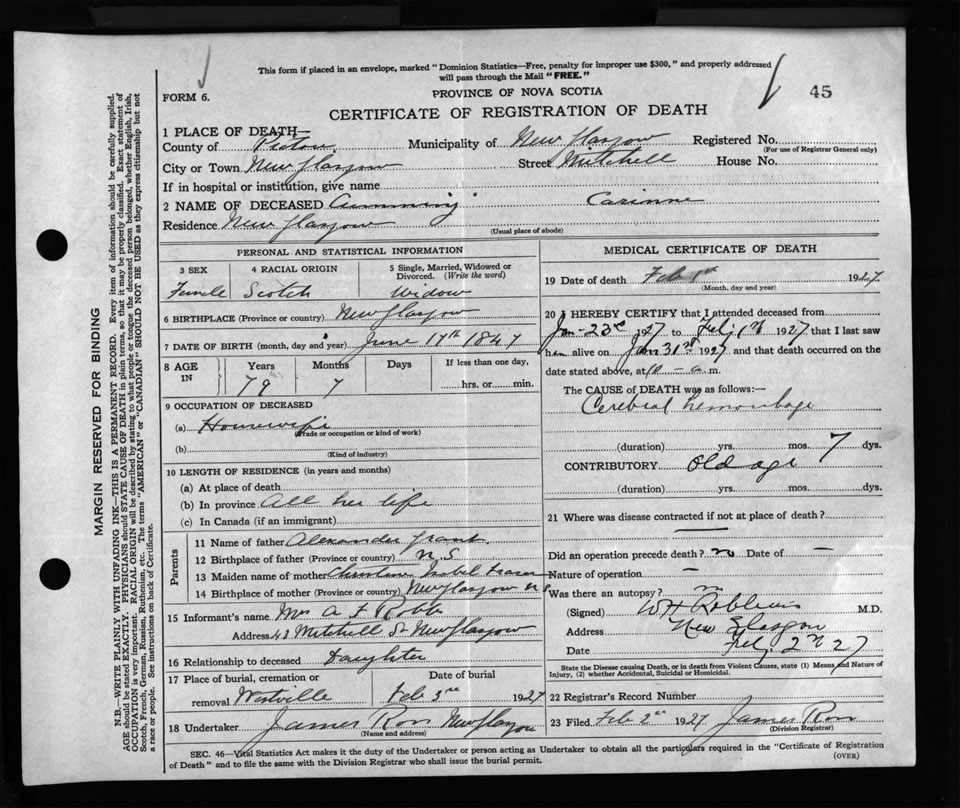 This form if placed in an envelope, marked "Dominion Statistics—Free, penalty for improper use $300," and properly addressed
will pass through the Mail "FREE."
45
FORM 6.
PROVINCE OF NOVA SCOTIA
CERTIFICATE OF REGISTRATION OF DEATH
1 PLACE OF DEATH—
County of Pictou Municipality of New Glasgow Registered No.
(For use of Registrar General only)
City or Town New Glasgow Street Mitchell House No.
If in hospital or institution, give name
2 NAME OF DECEASED Cumming Corinne
Residence New Glasgow
(Usual place of abode)
PERSONAL AND STATISTICAL INFORMATION
3 SEX 4 RACIAL ORIGIN 5 Single, Married, Widowed or
Divorced. (Write the word)
Female Scotch Widow
6 BIRTHPLACE (Province or country) New Glasgow
7 DATE OF BIRTH (month, day and year) June 17th 1847
8 AGE IN Years Months Days If less than one day,
79 7 hrs. or min.
9 OCCUPATION OF DECEASED
(a) Housewife
(Trade or occupation or kind of work)
(b)
(Kind of industry)
10 LENGTH OF RESIDENCE (in years and months)
(a) At place of death
(b) In province All her life
(c) In Canada (if an immigrant)
Parents
11 Name of father Alexander Grant
12 Birthplace of father (Province or country) N.S
13 Maiden name of mother Christine Isabel Fraser
14 Birthplace of mother (Province or country) New Glasgow NS
15 Informant's name Mrs A F Robb
Address 43 Mitchell St New Glasgow
16 Relationship to deceased Daughter
17 Place of burial, cremation or Date of burial
removal Westville Feb 3rd 1927
18 Undertaker James Ross New Glasgow
(Name and address)
MEDICAL CERTIFICATE OF DEATH
19 Date of death Feb 1st 1927
(Month, day and year)
20 I HEREBY CERTIFY that I attended deceased from
Jan-23rd 1927 to Feby 1st 1927 that I last saw
her alive on Jan 31st 1927 and that death occurred on the
date stated above, at a.m.
The CAUSE of DEATH was as follows:—
Cerebral hemorrhage
(duration) yrs. mos. 7 dys.
CONTRIBUTORY Old age
(duration) yrs. mos. dys.
21 Where was disease contracted if not at place of death?
—
Did an operation precede death? no Date of —
Nature of operation —
Was there an autopsy? no
(Signed) M.D.
Address New Glasgow
Date Feby 2nd 27
State the Disease causing Death, or in death from Violent Causes, state (1) Means and Nature of
Injury, (2) whether Accidental, Suicidal or Homicidal.
22 Registrar's Record Number
23 Filed Feb 2nd 1927 James Ross
(Division Registrar)
SEC. 46—Vital Statistics Act makes it the duty of the Undertaker or person acting as Undertaker to obtain all the particulars required in the "Certificate of Registration
of Death" and to file the same with the Division Registrar who shall issue the burial permit.
(OVER)
MARGIN RESERVED FOR BINDING
N.B.—WRITE PLAINLY WITH UNFADING INK—THIS IS A PERMANENT RECORD. Every item of information should be carefully supplied.
AGE should be stated EXACTLY. PHYSICIANS should STATE CAUSE OF DEATH in plain terms, so that it may be properly classified. Exact statement of
OCCUPATION is very important. RACIAL ORIGIN will be described by stating to what people or race the deceased person belonged, whether English, Irish,
Scotch, French, German, Russian, Ruthenian, etc. The terms "AMERICAN" or "CANADIAN" SHOULD NOT BE USED as they express citizenship but not
a race or people. See instructions on back of Certificate.